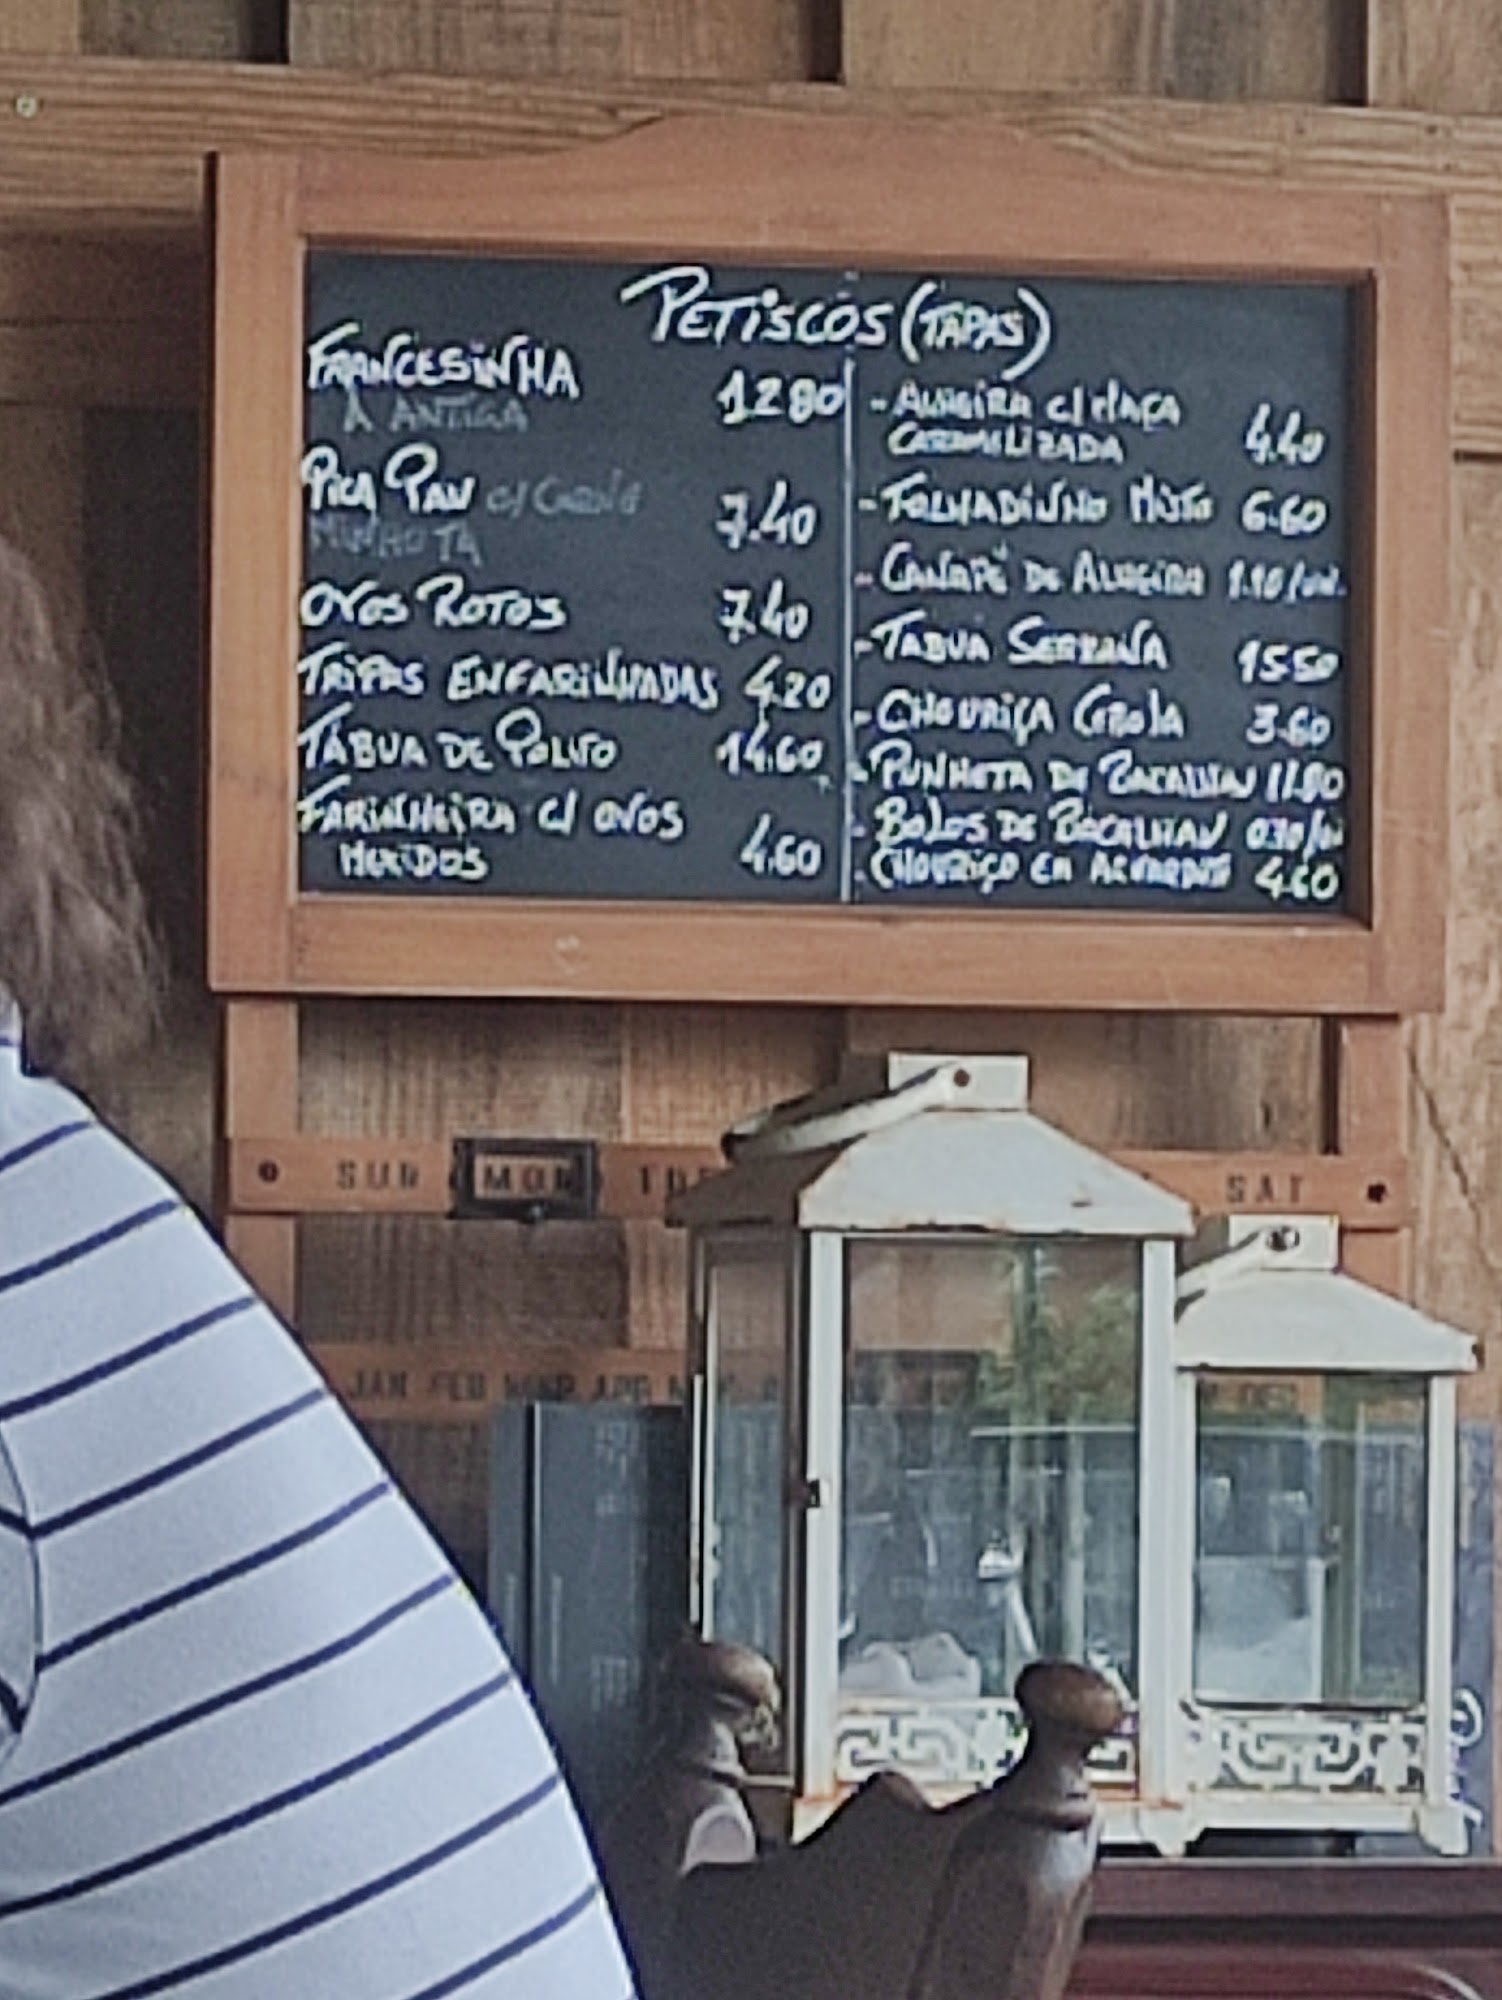 PETISCOS (TAPAS)
FRANCESINHA
À ANTIGA 12.80
PICA PAU c/ CARNE
MINHOTA 7.40
OVOS ROTOS 7.40
TRIPAS ENFARINHADAS 4.20
TÁBUA DE POLVO 14.60
FARINHEIRA c/ OVOS
MEXIDOS 4.60
- ALHEIRA c/ MAÇA
CARAMELIZADA 4.40
- FOLHADINHO MISTO 6.60
- CANAPÉ DE ALHEIRA 1.10/un.
- TABUA SERRANA 15.50
- CHOURIÇA CEBOLA 3.60
- PUNHETA DE BACALHAU 11.80
- BOLOS DE BACALHAU 0.70/un
- CHOURIÇO EM AGUARDENTE 4.60
SUN MON SAT
JAN FEB MAR APR